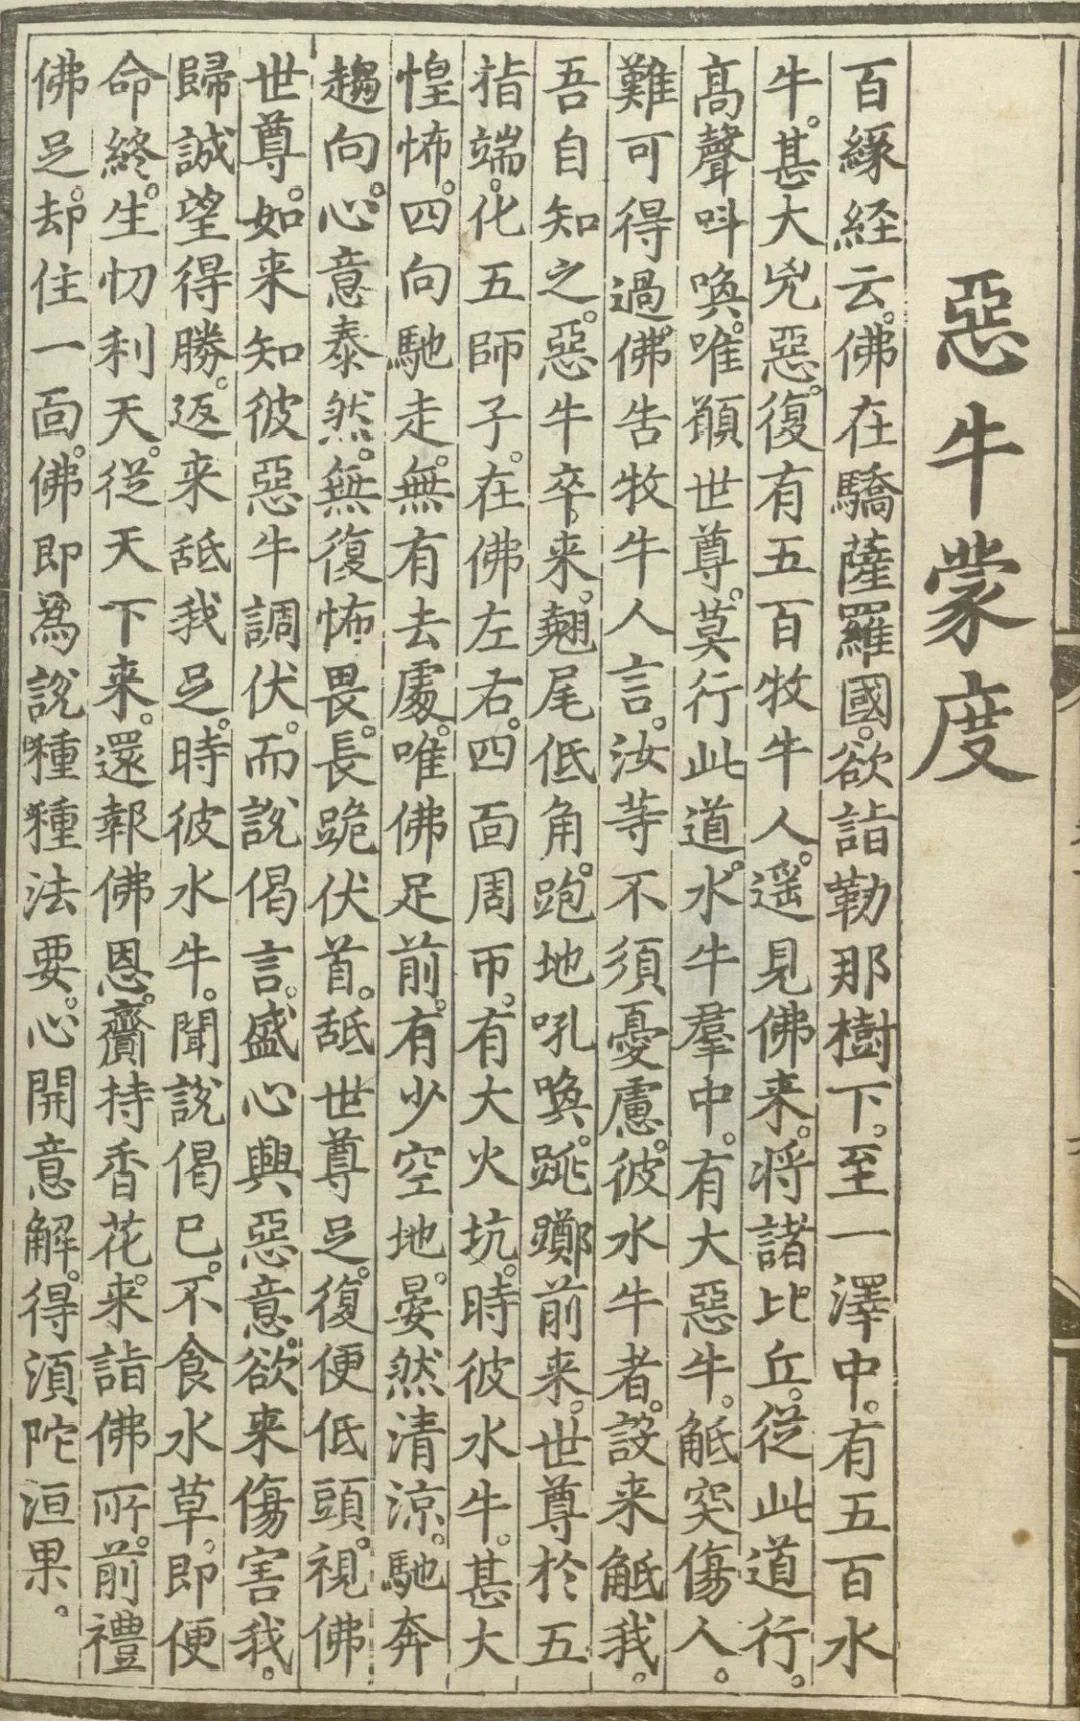 惡牛蒙度
百緣経云。佛在驕薩羅國。欲詣勒那樹下。至一澤中。有五百水
牛。甚大兇惡。復有五百牧牛人。遥見佛来。将諸比丘。從此道行。
髙聲呌喚。唯願世尊。莫行此道。水牛羣中。有大惡牛。觝突傷人。
難可得過。佛告牧牛人言。汝等不須憂慮。彼水牛者。設来觝我。
吾自知之。惡牛卒来。翹尾低角。跑地吼喚。跳躑前来。世尊於五
指端。化五師子。在佛左右。四面周帀。有大火坑。時彼水牛。甚大
惶怖。四向馳走。無有去處。唯佛足前。有少空地。晏然清涼。馳奔
趨向。心意泰然。無復怖畏。長跪伏首。舐世尊足。復便低頭。視佛
世尊。如来知彼惡牛調伏。而説偈言。盛心興惡意。欲来傷害我。
歸誠望得勝。返来舐我足。時彼水牛。聞説偈已。不食水草。即便
命終。生忉利天。從天下来。還報佛恩。齎持香花。来詣佛所。前禮
佛足。却住一面。佛即為説種種法要。心開意解。得湏陀洹果。